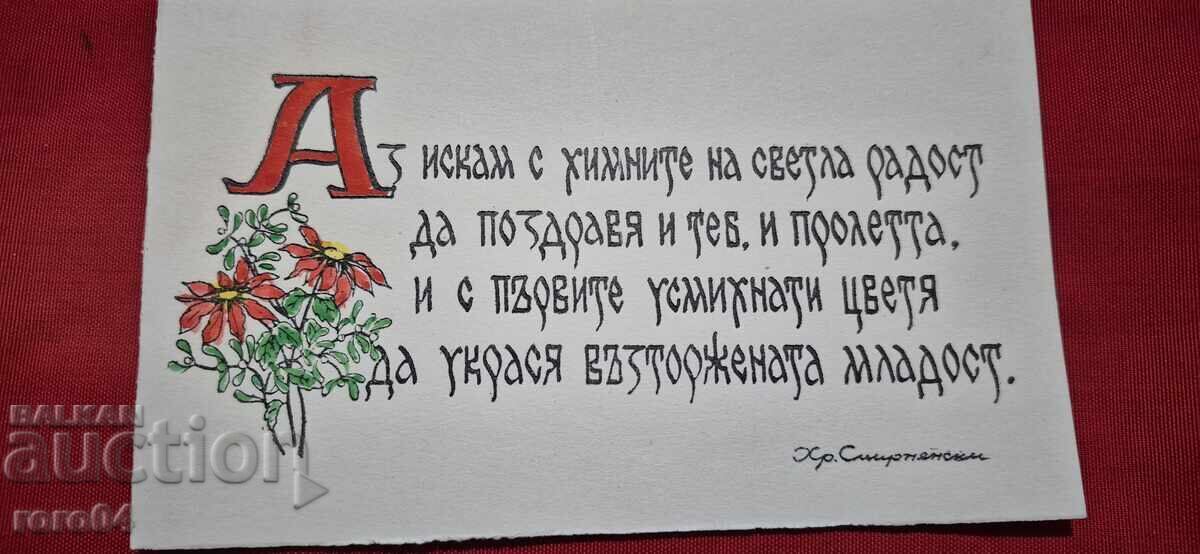 Аз искам с химните на светла радост
да поздравя и теб, и пролетта,
и с първите усмихнати цветя
да украся възторжената младост.
Хр. Смирненски
BALKAN
auction
roro64